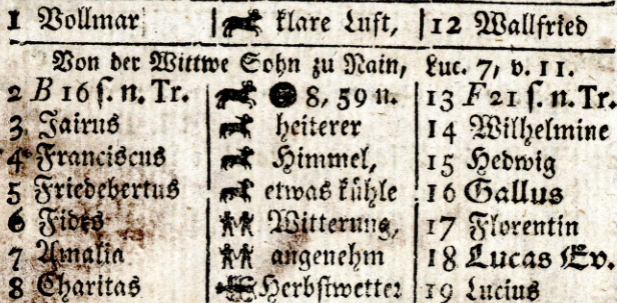 1 Vollmar klare Luft, 12 Wallfried
Von der Wittwe Sohn zu Nain, Luc. 7, v. 11.
2 B 16 ſ. n. Tr. 8, 59 n. 13 F 21 ſ. n. Tr.
3 Jairus heiterer 14 Wilhelmine
4 Franciscus Himmel, 15 Hedwig
5 Friedebertus etwas kühle 16 Gallus
6 Fides Witterung, 17 Florentin
7 Amalia angenehm 18 Lucas Ev.
8 Charitas Herbſtwetter 19 Lucius